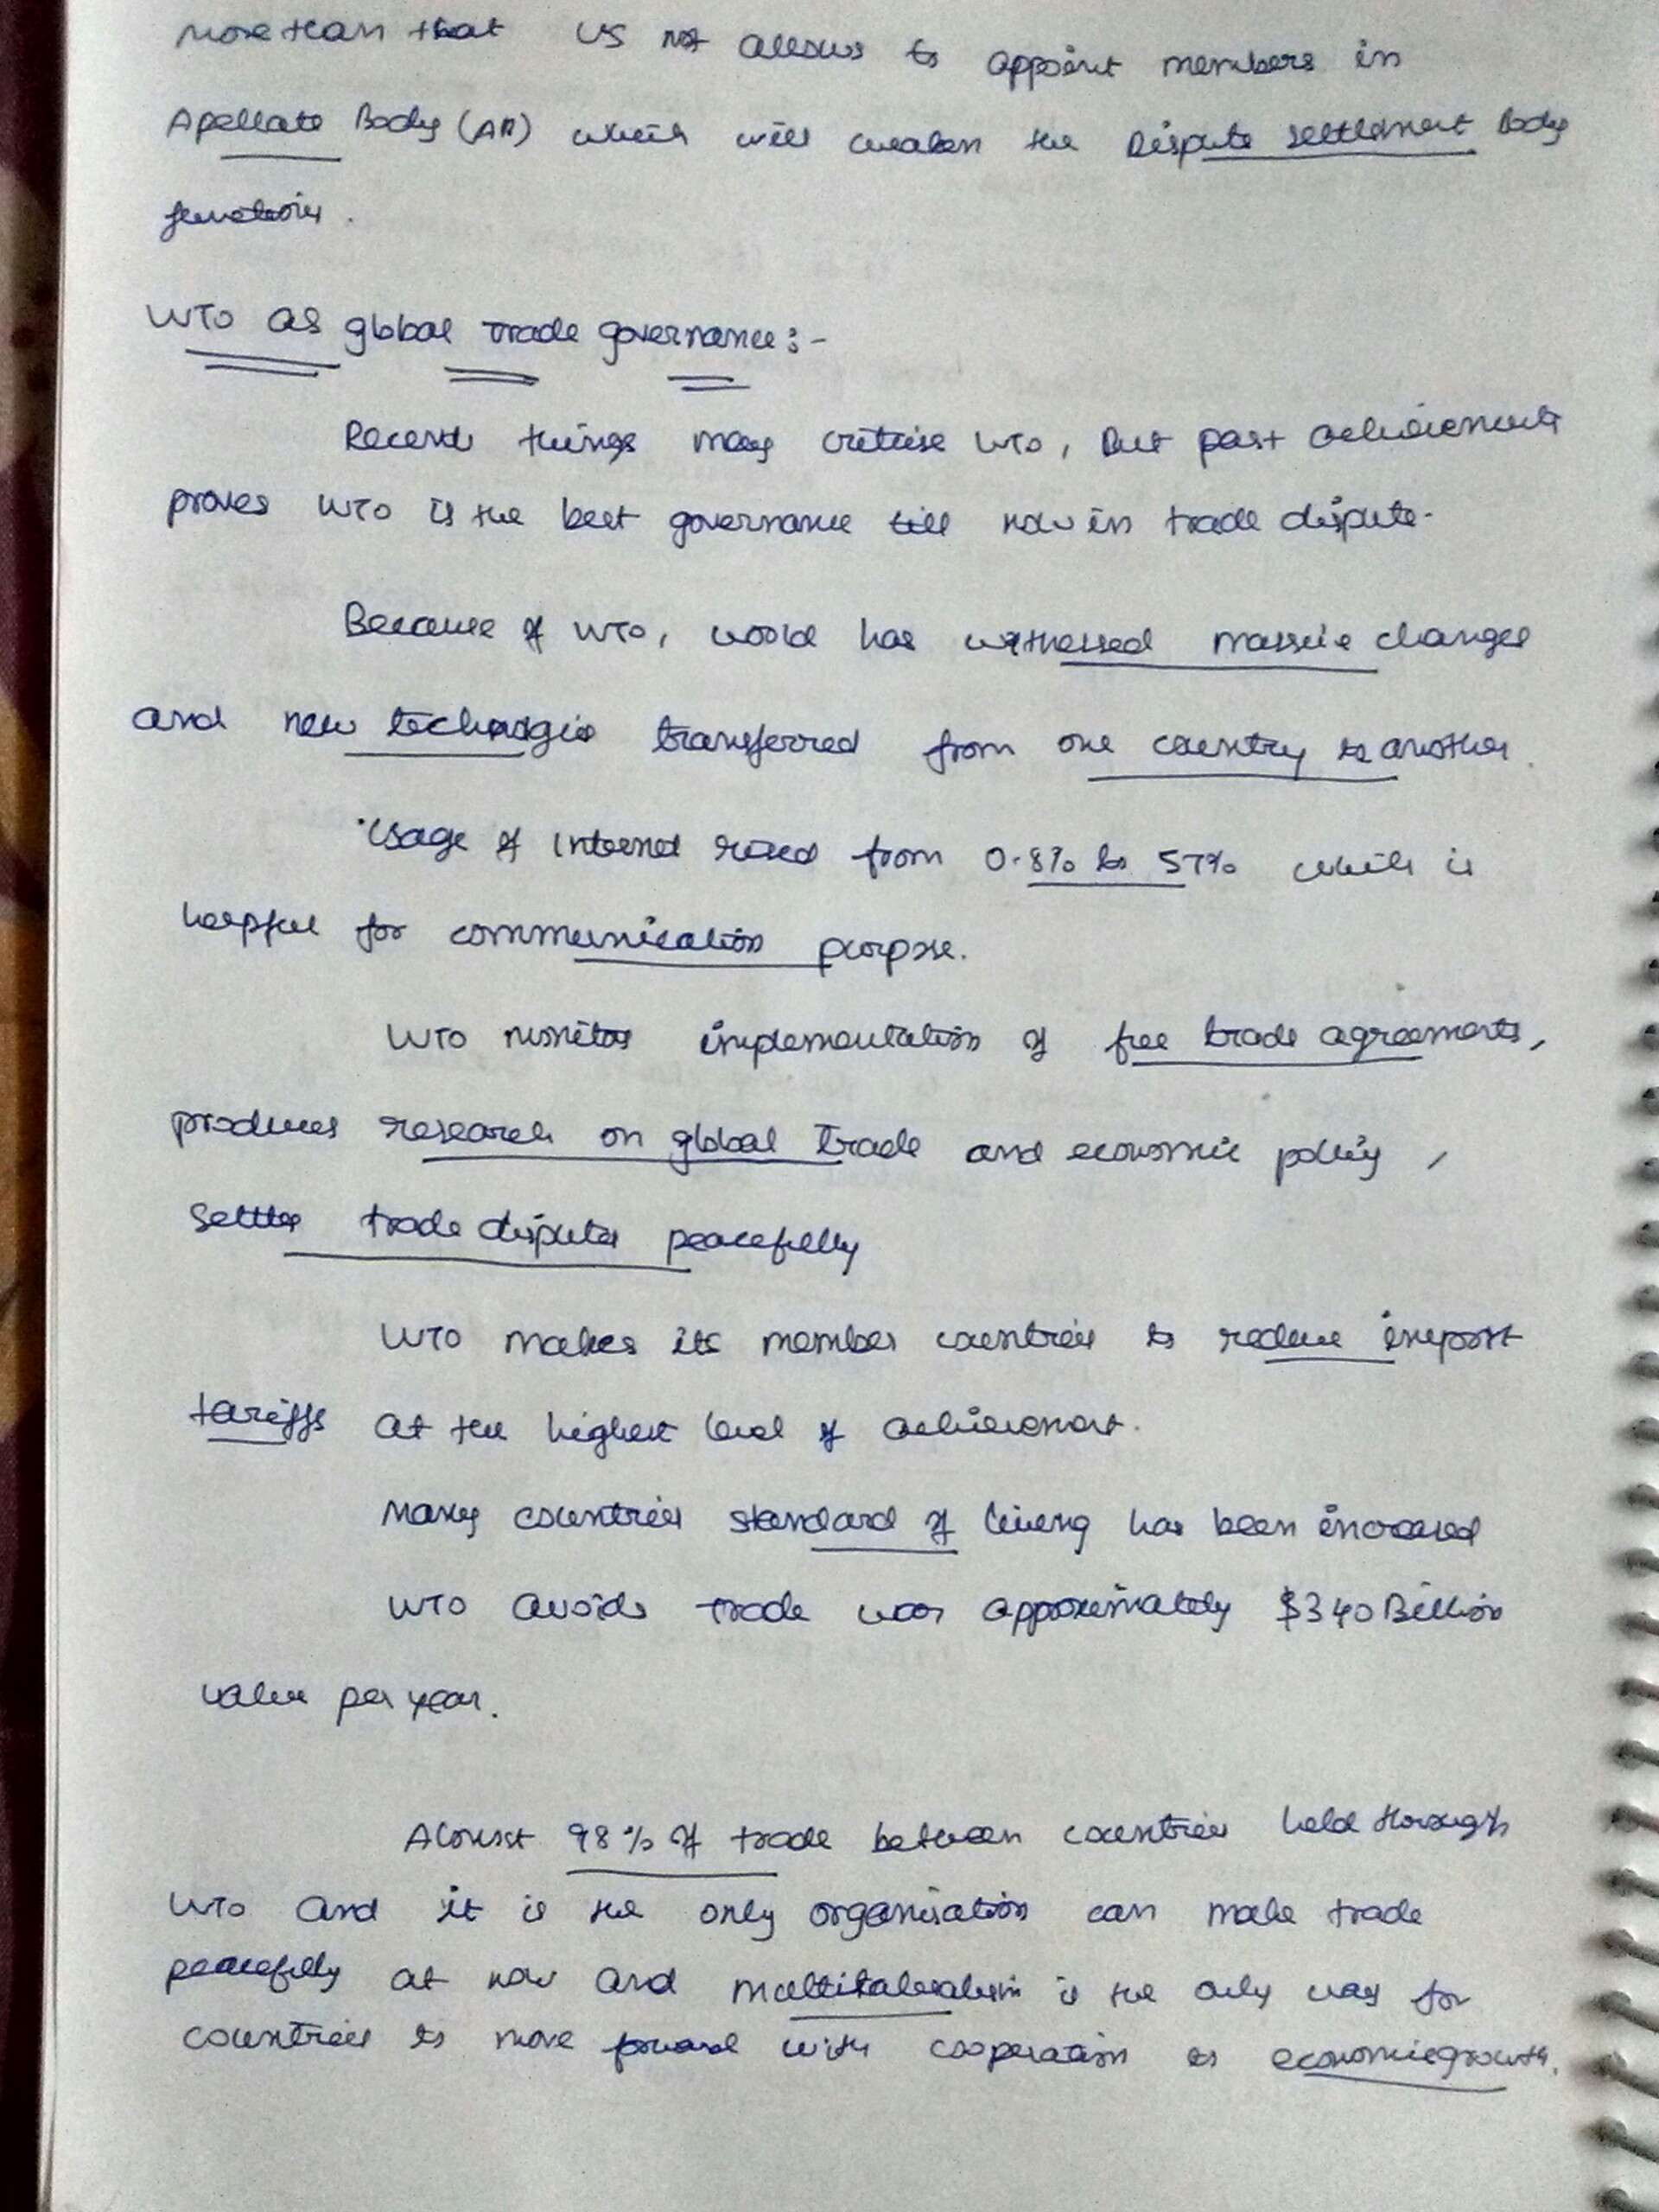 more than that US not allows to appoint members in
Apellate Body (AB) which will weaken the Dispute settlement Body
functions.
WTO as global trade governance:-
Recent things may critise WTO, But past achievements
proves WTO is the best governance till now in trade dispute.
Because of WTO, world has witnessed massive changes
and new technolgies transferred from one country to another.
Usage of Internet raised from 0.8% to 57% which is
helpful for communication purpose.
WTO monitors implementation of free trade agreements,
produces research on global trade and economic policy,
settles trade disputes peacefully
WTO makes its member countries to reduce import
tariffs at the highest level of achievement.
Many countries standard of living has been increased
WTO avoids trade war approximately $340 Billion
value per year.
Almost 98% of trade between countries held through
WTO and it is the only organisation can make trade
peacefully at now and multilateralism is the only way for
countries to move forward with cooperation to economic growth.